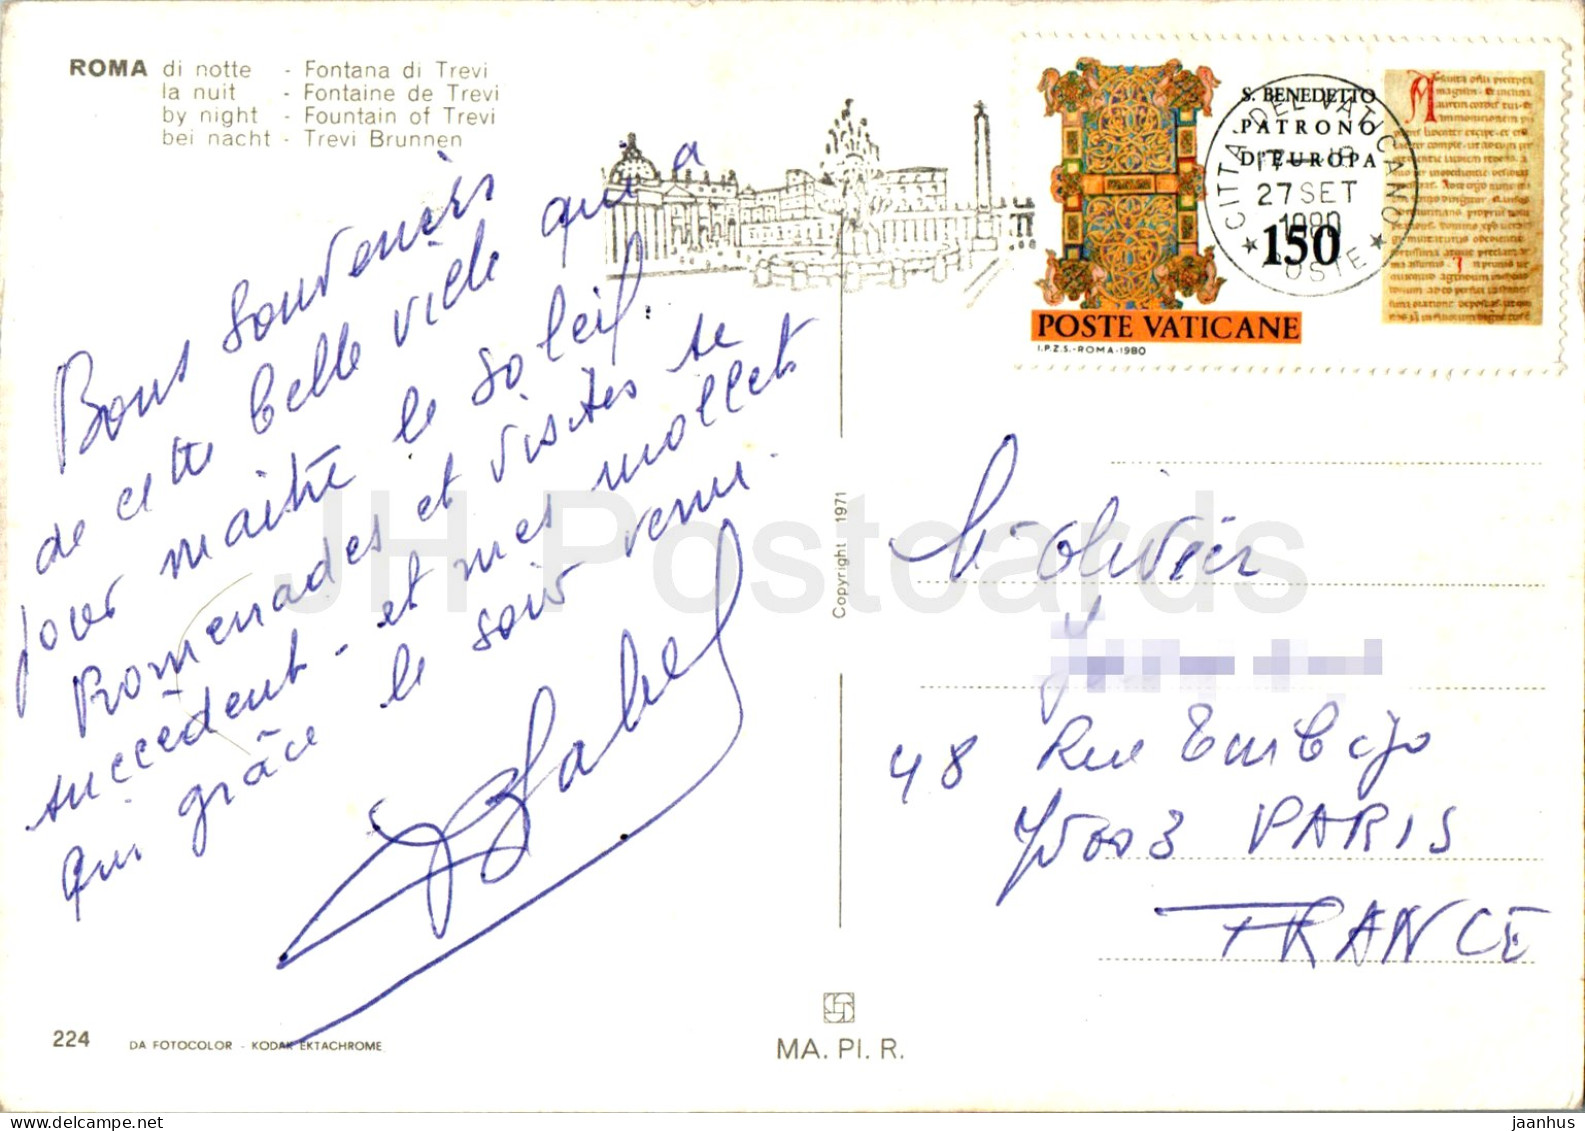 ROMA di notte - Fontana di Trevi
la nuit - Fontaine de Trevi
by night - Fountain of Trevi
bei nacht - Trevi Brunnen
Bons souvenirs
de cette belle ville qui a
pour maître le soleil.
Promenades et visites se
succèdent - et mes mollets
qui grâce le soir venu.
S. BENEDETTO
PATRONO
D'EUROPA
150
POSTE VATICANE
I.P.Z.S.-ROMA-1980
CITTA DEL VATICANO
27 SET
1980
POSTE
Olivier
48 Rue Turbigo
75003 PARIS
FRANCE
Copyright 1971
224
DA FOTOCOLOR - KODAK EKTACHROME
MA. PI. R.
JH Postcards
delcampe.net
jaanhus